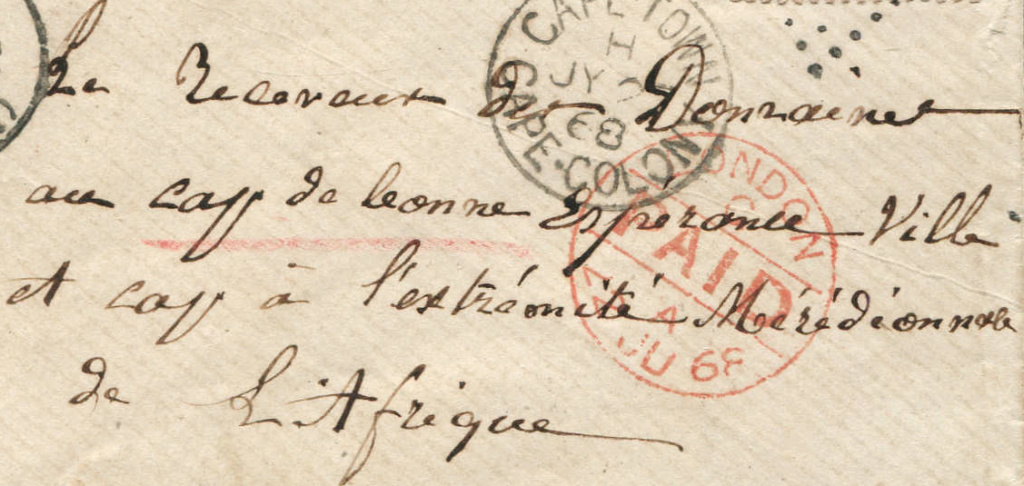 CAPE-TOWN
I
JY
68
CAPE-COLONY
Le Receveur des Domaines
au cap de bonne Espérance Ville
et cap à l'extrémité Méridionnale
de L'Afrique
LONDON
PAID
4
JU 68